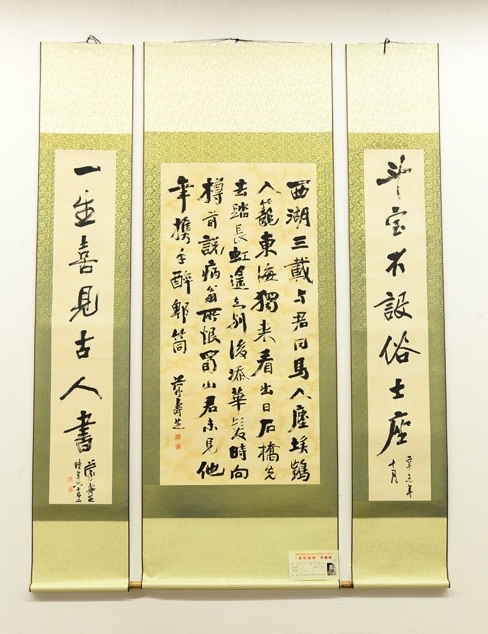 斗室不設俗士座
辛未年
十月
西湖三載与君同馬入塵埃鶴
入籠東海獨来看出日石橋先
去踏長虹遥知別後添華髮時向
樽前説病翁所恨蜀山君未見他
年携手醉郫筒 壽芝
一生喜見古人書
壽芝
時年六十